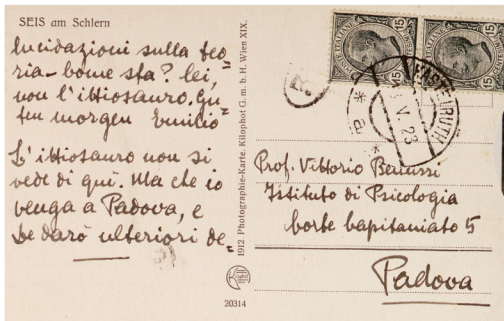 SEIS am Schlern
lucidazioni sulla teo=
ria - Come sta? lei,
non l'ittiosauro. Gu
ten morgen Emilio
L'ittiosauro non si
vede di quì. Ma che io
venga a Padova, e
Le darò ulteriori de=
1912 Photographie-Karte. Kilophot G. m. b. H. Wien XIX.
20314
POSTE ITALIANE
15
15
V. 23
* a *
Prof. Vittorio Benussi
Istituto di Psicologia
Corte Capitaniato 5
Padova